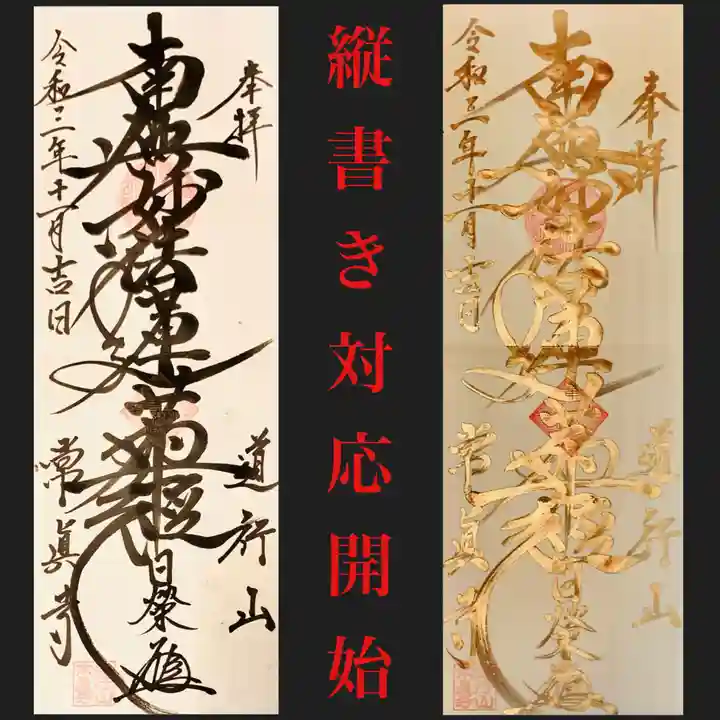 奉拝
南無妙法蓮華経
日榮
令和三年十一月吉日
道行山
常真寺
縦書き対応開始
奉拝
南無妙法蓮華経
日榮
令和三年十一月吉日
道行山
常真寺